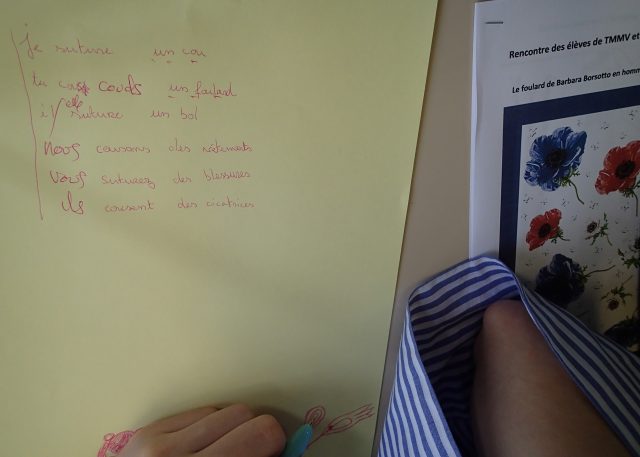 je suture un cou
tu couds un foulard
il/elle suture un bol
Nous cousons des vêtements
Vous suturez des blessures
ils cousent des cicatrices
Rencontre des élèves de TMMV et
Le foulard de Barbara Borsotto en homm